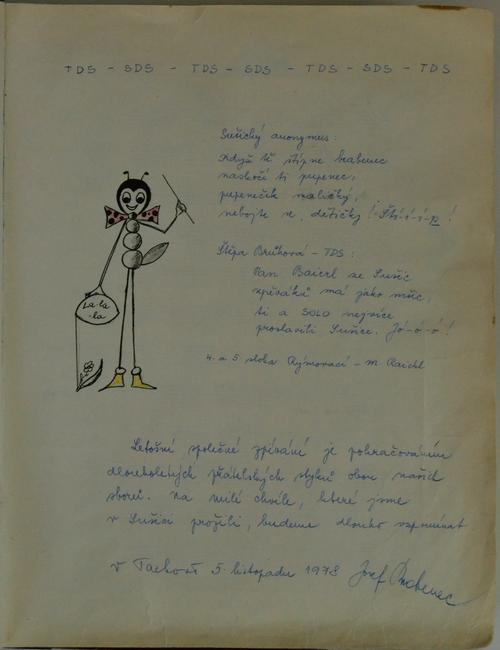 TDS - SDS - TDS - SDS - TDS - SDS - TDS
Sušický anonymus:
Když tě štípne brabenec
naskočí ti pupenec,
pupeneček maličký,
nebojte se, dětičky! Ští-í-í-p!
Štípa Brůhová - TDS:
Pan Baierl ze Sušic
zpěváků má jako myšic,
ti a SOLO nejvíce
proslavili Sušice. Jó-ó-ó!
4. a 5. sloka Rýmovací - M. Raichl
La-la
-la
Letošní společné zpívání je pokračováním
dlouholetých přátelských styků obou našich
sborů. Na milé chvíle, které jsme
v Sušici prožili, budeme dlouho vzpomínat
V Tachově 5. listopadu 1978 Josef Brabenec